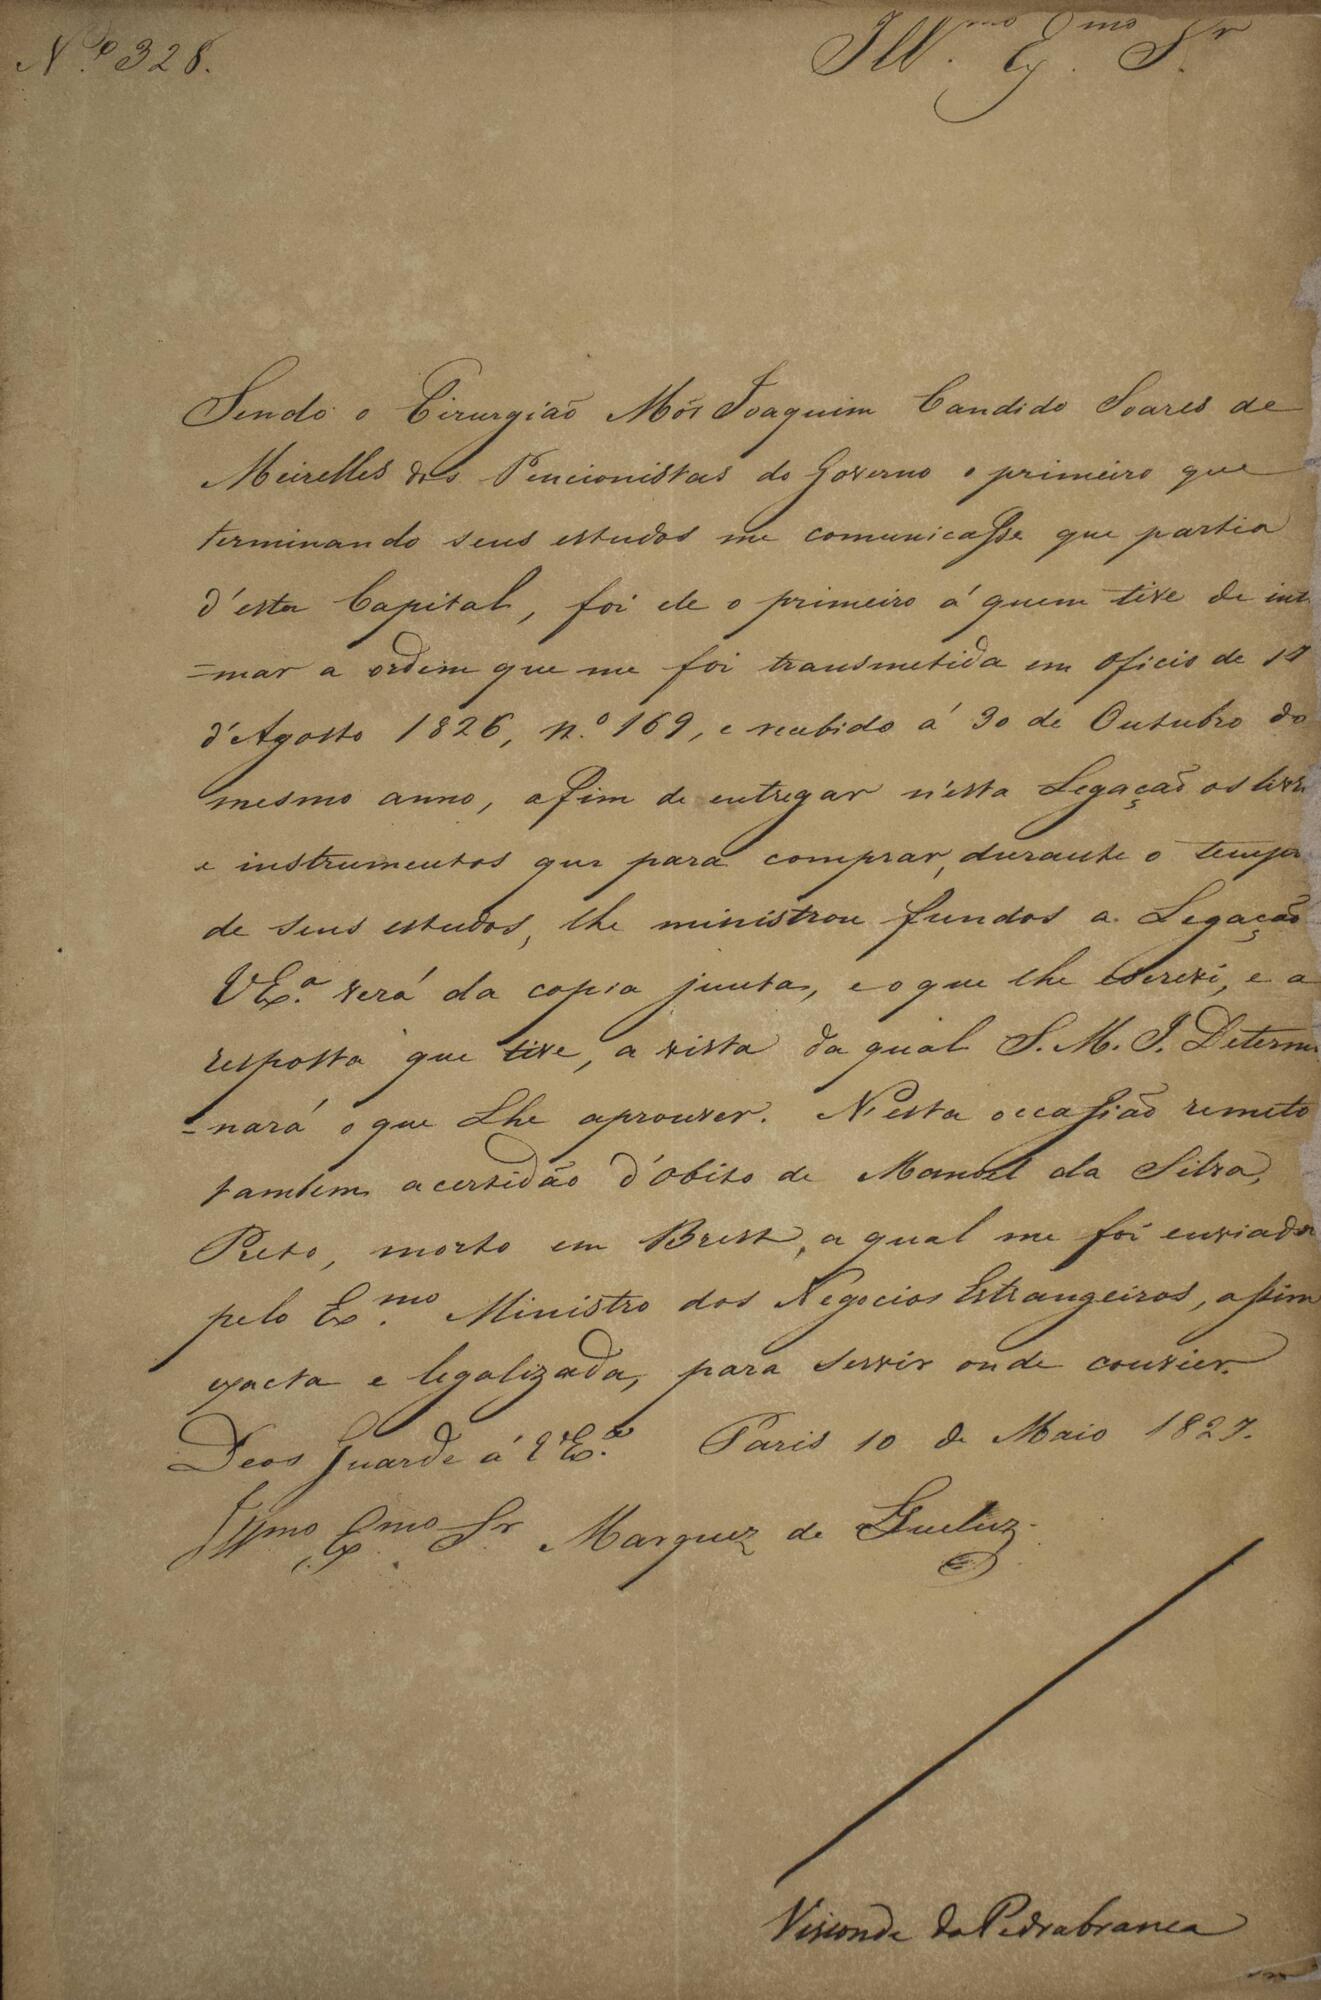 N.º 328.
Ill.mo Ex.mo Sr.
Sendo o Cirurgião Mór Joaquim Candido Soares de
Meirelles dos Pencionistas do Governo o primeiro que
terminando seus estudos me comunicasse que partia
d'esta Capital, foi ele o primeiro á quem tive de inti
=mar a ordem que me foi transmetida em oficio de 14
d'Agosto 1826, n.º 169, e recebido á 30 de Outubro do
mesmo anno, afim de entregar n'esta Legação os livros
e instrumentos que para comprar, durante o tempo
de seus estudos, lhe ministrou fundos a Legação
VEx.ª verá da copia junta, e o que lhe escrevi, e a
resposta que tive, a vista da qual S. M. I. Determi
=nará o que Lhe aprouver. N'esta occasião remeto
tambem a certidão d'obito de Manoel da Silva,
Preto, morto em Brest, a qual me foi enviada
pelo Ex.mo Ministro dos Negocios Estrangeiros, assim
exacta e legalizada, para servir onde convier.
Deos Guarde á VEx.ª Paris 10 de Maio 1827.
Illmo Ex.mo Sr Marquez de Queluz.
Visconde da Pedrabranca